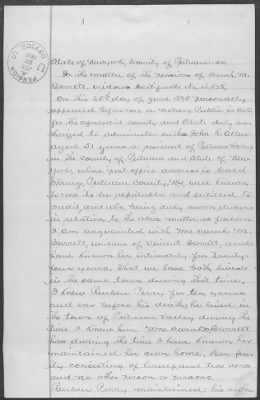 State of New York, County of Putnam ss.
In the matter of the pension of Sarah M.
Barrett, widow's Certificate No.
On this 25th day of June 1898 personally
appeared before me a Notary Public in and
for the aforesaid county and State duly au-
thorized to administer oaths John C. Allen
aged 51 years, a resident of Putnam Valley
in the county of Putnam and State of New
York, whose post-office address is
Putnam County, N.Y. well known
to me to be reputable and entitled to
credit, and who being duly sworn declares
in relation to the above matter as follows
I am acquainted with Mrs. Sarah M.
Barrett, widow of Vincent Barrett, and
have known her intimately for twenty-
four years. That we have both lived
in the same town during that time.
I knew Reuben Perry for ten years
and over before his death; he lived in
the town of Putnam Valley during the
time I knew him. Mrs. Sarah M. Barrett
has during the time I have known her
maintained her own home, her fam-
ily consisting of herself and two sons
and no other person or persons.
Reuben Perry maintained his own